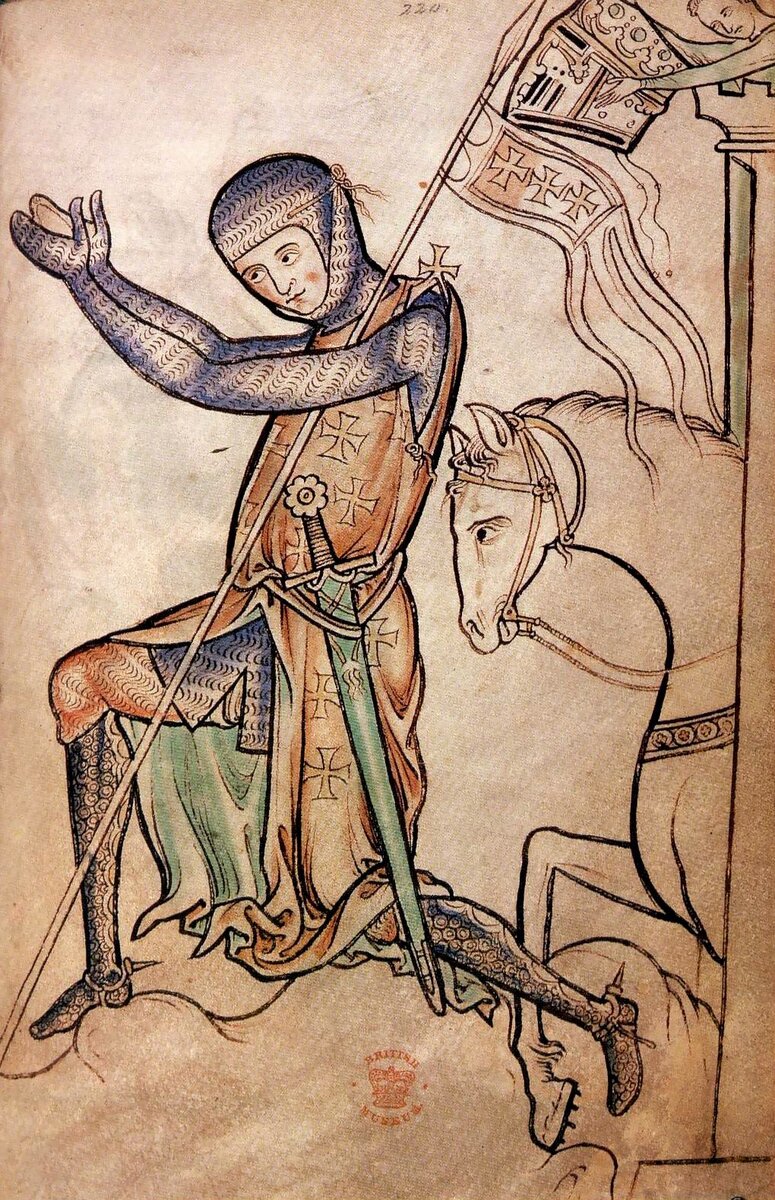 224.
BRITISH
MUSEUM